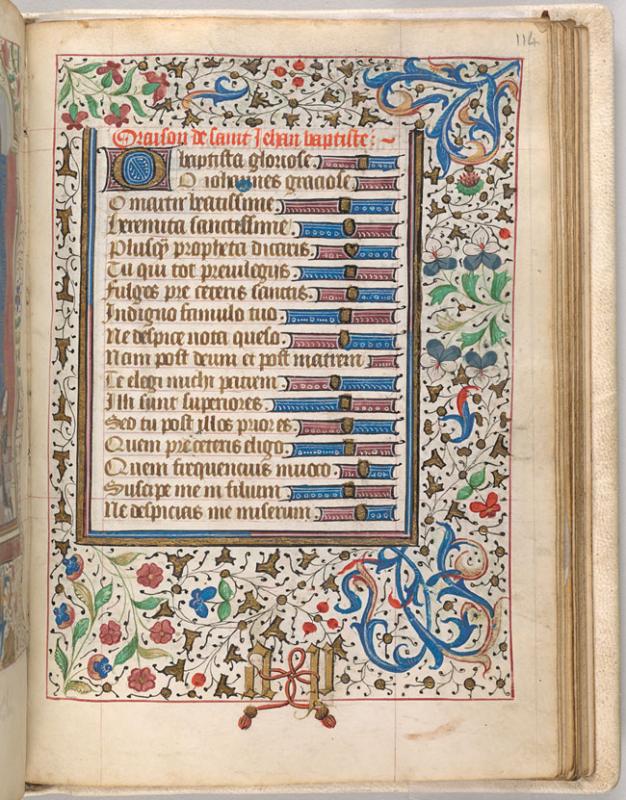 114
Oraison de saint Jehan baptiste:
O baptista gloriose
O iohannes graciose
O martir beatissime
heremita sanctissime
Plusq̃ propheta dicaris
Tu qui tot preuilegijs
fulges pre ceteris sanctis
Indigno famulo tuo
Ne despice nota queso
Nam post deum et post matrem
Te elegi michi patrem
Illi sunt superiores
Sed tu post illos priores
Quem pre ceteris eligo
Quem frequencius inuoco
Suscipe me in filium
Ne despicias me miserum